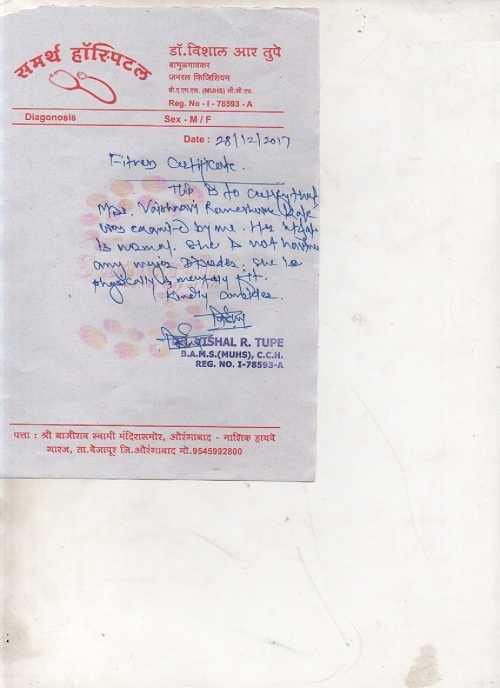 समर्थ हॉस्पिटल
डॉ.विशाल आर तुपे
बाभुळगावकर
जनरल फिजिशियन
बी.ए.एम.एस. (MUHS) सी.सी.एच.
Reg. No - I - 78593 - A
Diagonosis Sex - M / F
Date : 28/12/2017
Fitness Certificate.
This is to certify that
Miss. Vaishnavi Rameshwar
was examined by me. Her
is normal. She is not having
any major Disorder. She is
physically & mentally fit.
Kindly consider.
VISHAL R. TUPE
B.A.M.S.(MUHS), C.C.H.
REG. NO. I-78593-A
पत्ता : श्री बाजीराव स्वामी मंदिरासमोर, औरंगाबाद - नाशिक हायवे
गारज, ता.वैजापूर जि.औरंगाबाद मो.9545992800